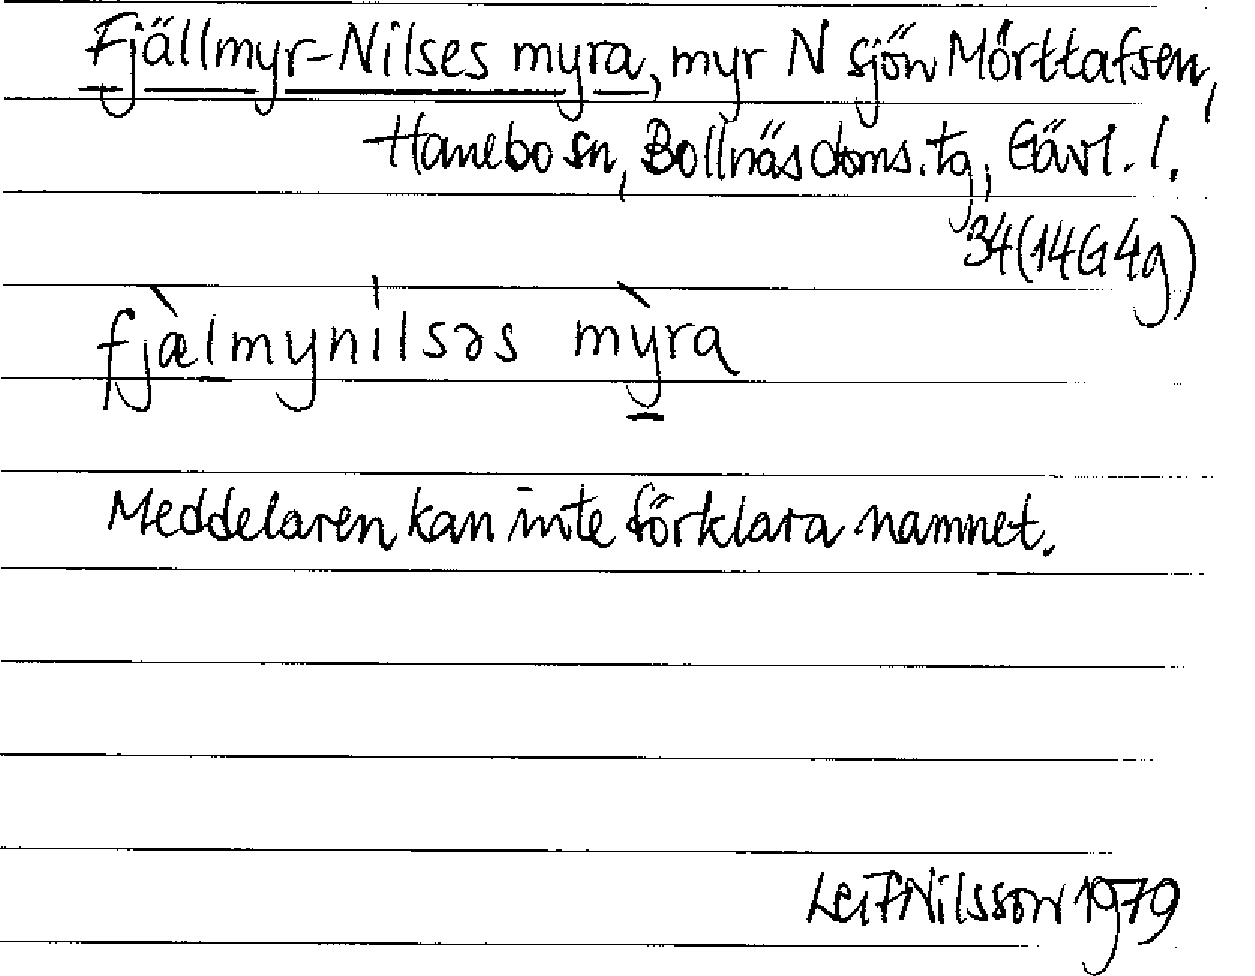 Fjällmyr-Nilses myra, myr N sjön Mörttafsen,
Hanebo sn, Bollnäs doms.tg, Gävl. l.
34(14G4g)
fjæ̀lmynílsəs mỳra
Meddelaren kan inte förklara namnet.
Leif Nilsson 1979